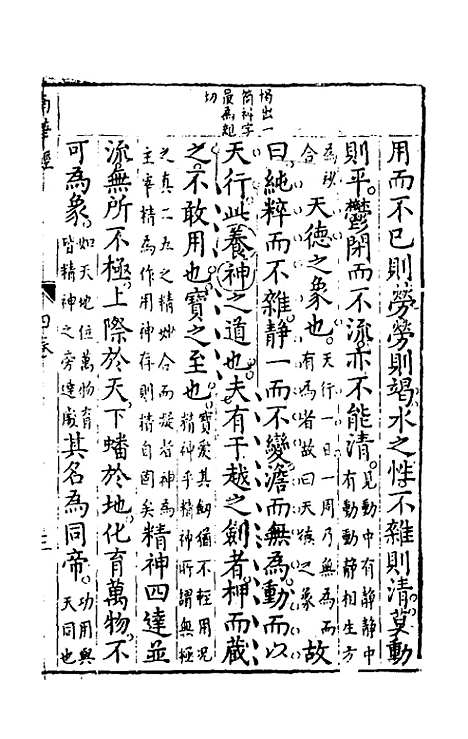 揭出一
箇神字
最為親
切
用而不已則勞勞則竭水之性不雜則清莫動
則平鬱閉而不流亦不能清見動中有靜靜中有動動靜相生方
為妙合天德之象也天行一日一周乃無為而有為者故曰天德之象故
曰純粹而不雜靜一而不變澹而無為動而以
天行此養神之道也夫有干越之劍者柙而藏
之不敢用也寶之至也寶愛其劍猶不輕用況精神乎精神所謂無極
之真二五之精妙合而凝者神為主宰精為作用神存則精自固矣精神四達並
流無所不極上際於天下蟠於地化育萬物不
可為象如天地位萬物育皆精神之旁達處其名為同帝功用與天同也
南華經
四卷
三